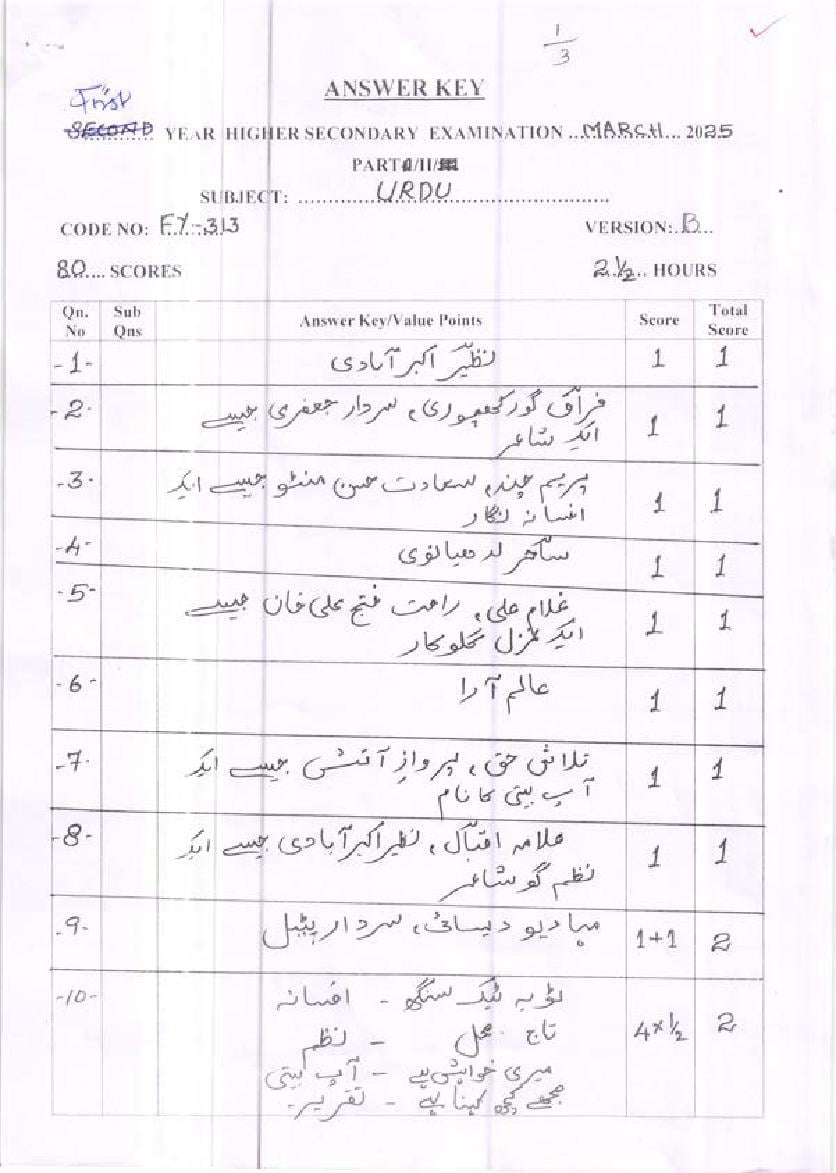 1/3
ANSWER KEY
First
SECOND YEAR HIGHER SECONDARY EXAMINATION ..MARCH... 2025
PART I/II/III
SUBJECT: ........URDU........
CODE NO: FY-313 VERSION:.B...
80.... SCORES 2.½.. HOURS
Qn. No Sub Qns Answer Key/Value Points Score Total Score
-1- نظیر اکبر آبادی 1 1
-2- فراق گورکھپوری، سردار جعفری جیسے
ایک شاعر 1 1
-3- پریم چند، سعادت حسن منٹو جیسے ایک
افسانہ نگار 1 1
-4- ساحر لدھیانوی 1 1
-5- غلام علی، راحت فتح علی خان جیسے
ایک غزل گلوکار 1 1
-6- عالم آرا 1 1
-7- تلاش حق، پرواز آتش جیسے ایک
آپ بیتی کا نام 1 1
-8- علامہ اقبال، نظیر اکبر آبادی جیسے ایک
نظم گو شاعر 1 1
-9- مہادیو دیسائی، سردار پٹیل 1+1 2
-10- ٹوبہ ٹیک سنگھ - افسانہ
تاج محل - نظم 4×½ 2
میری خواہش ہے - آپ بیتی
مجھے کچھ کہنا ہے - تقریر